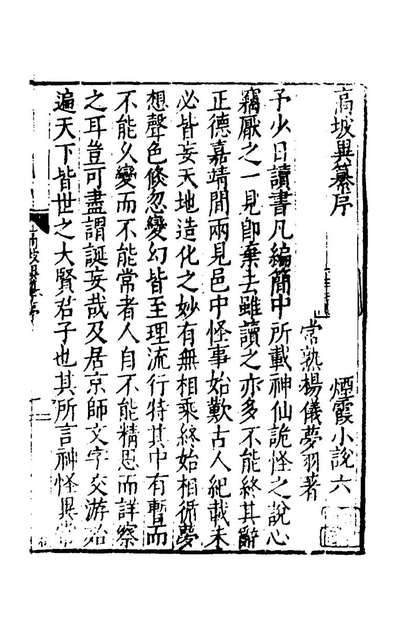 高坡異纂序
煙霞小說六
常熟楊儀夢羽著
予少日讀書凡編簡中所載神仙詭怪之說心
竊厭之一見即棄去雖讀之亦多不能終其辭
正德嘉靖間兩見邑中怪事始歎古人紀載未
必皆妄天地造化之妙有無相乘終始相術夢
想聲色倏忽變幻皆至理流行特其中有暫而
不能久變而不能常者人自不能精思而詳察
之耳豈可盡謂誕妄哉及居京師文字交游殆
遍天下皆世之大賢君子也其所言神怪異常